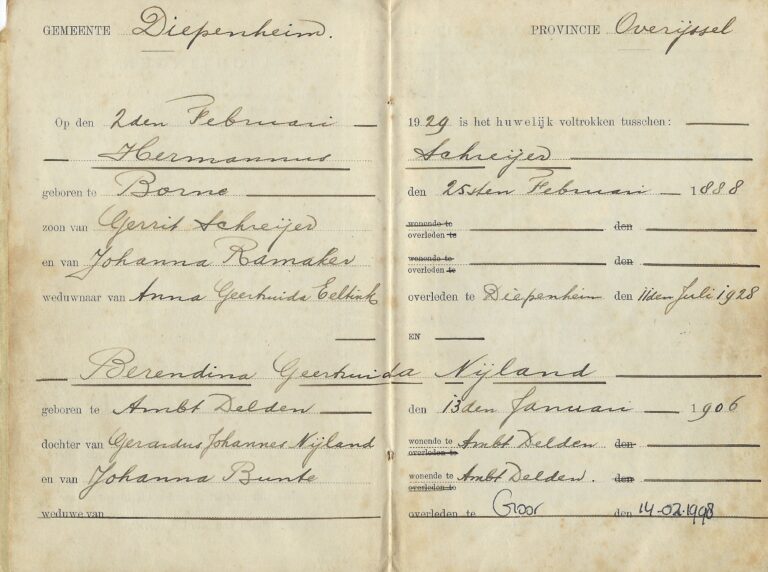 GEMEENTE Diepenheim. PROVINCIE Overijssel
Op den 2den Februari 1929 is het huwelijk voltrokken tusschen:
Hermannus Schreijer
geboren te Borne den 25sten Februari 1888
zoon van Gerrit Schreijer wonende te overleden te den
en van Johanna Ramaker wonende te overleden te den
weduwnaar van Anna Geertruida Eeltink overleden te Diepenheim den 11den Juli 1928
EN
Berendina Geertruida Nijland
geboren te Ambt Delden den 13den Januari 1906
dochter van Gerardus Johannes Nijland wonende te overleden te Ambt Delden den
en van Johanna Bunte wonende te overleden te Ambt Delden. den
weduwe van overleden te Goor den 14-02-1998